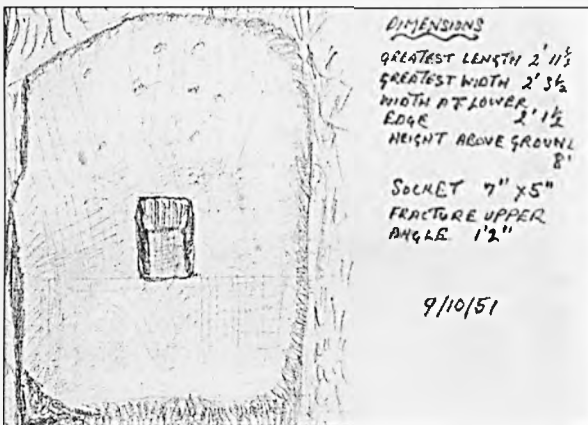 DIMENSIONS
GREATEST LENGTH 2' 11½
GREATEST WIDTH 2' 3½
WIDTH AT LOWER
EDGE 2' 1½
HEIGHT ABOVE GROUND
8"
SOCKET 7" x 5"
FRACTURE UPPER
ANGLE 1'2"
9/10/51